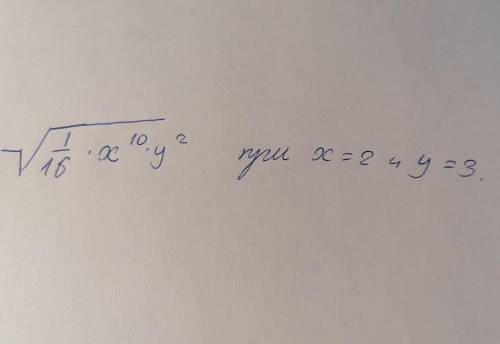 √(1/16 · x¹⁰ · y²) при x = 2 и y = 3.